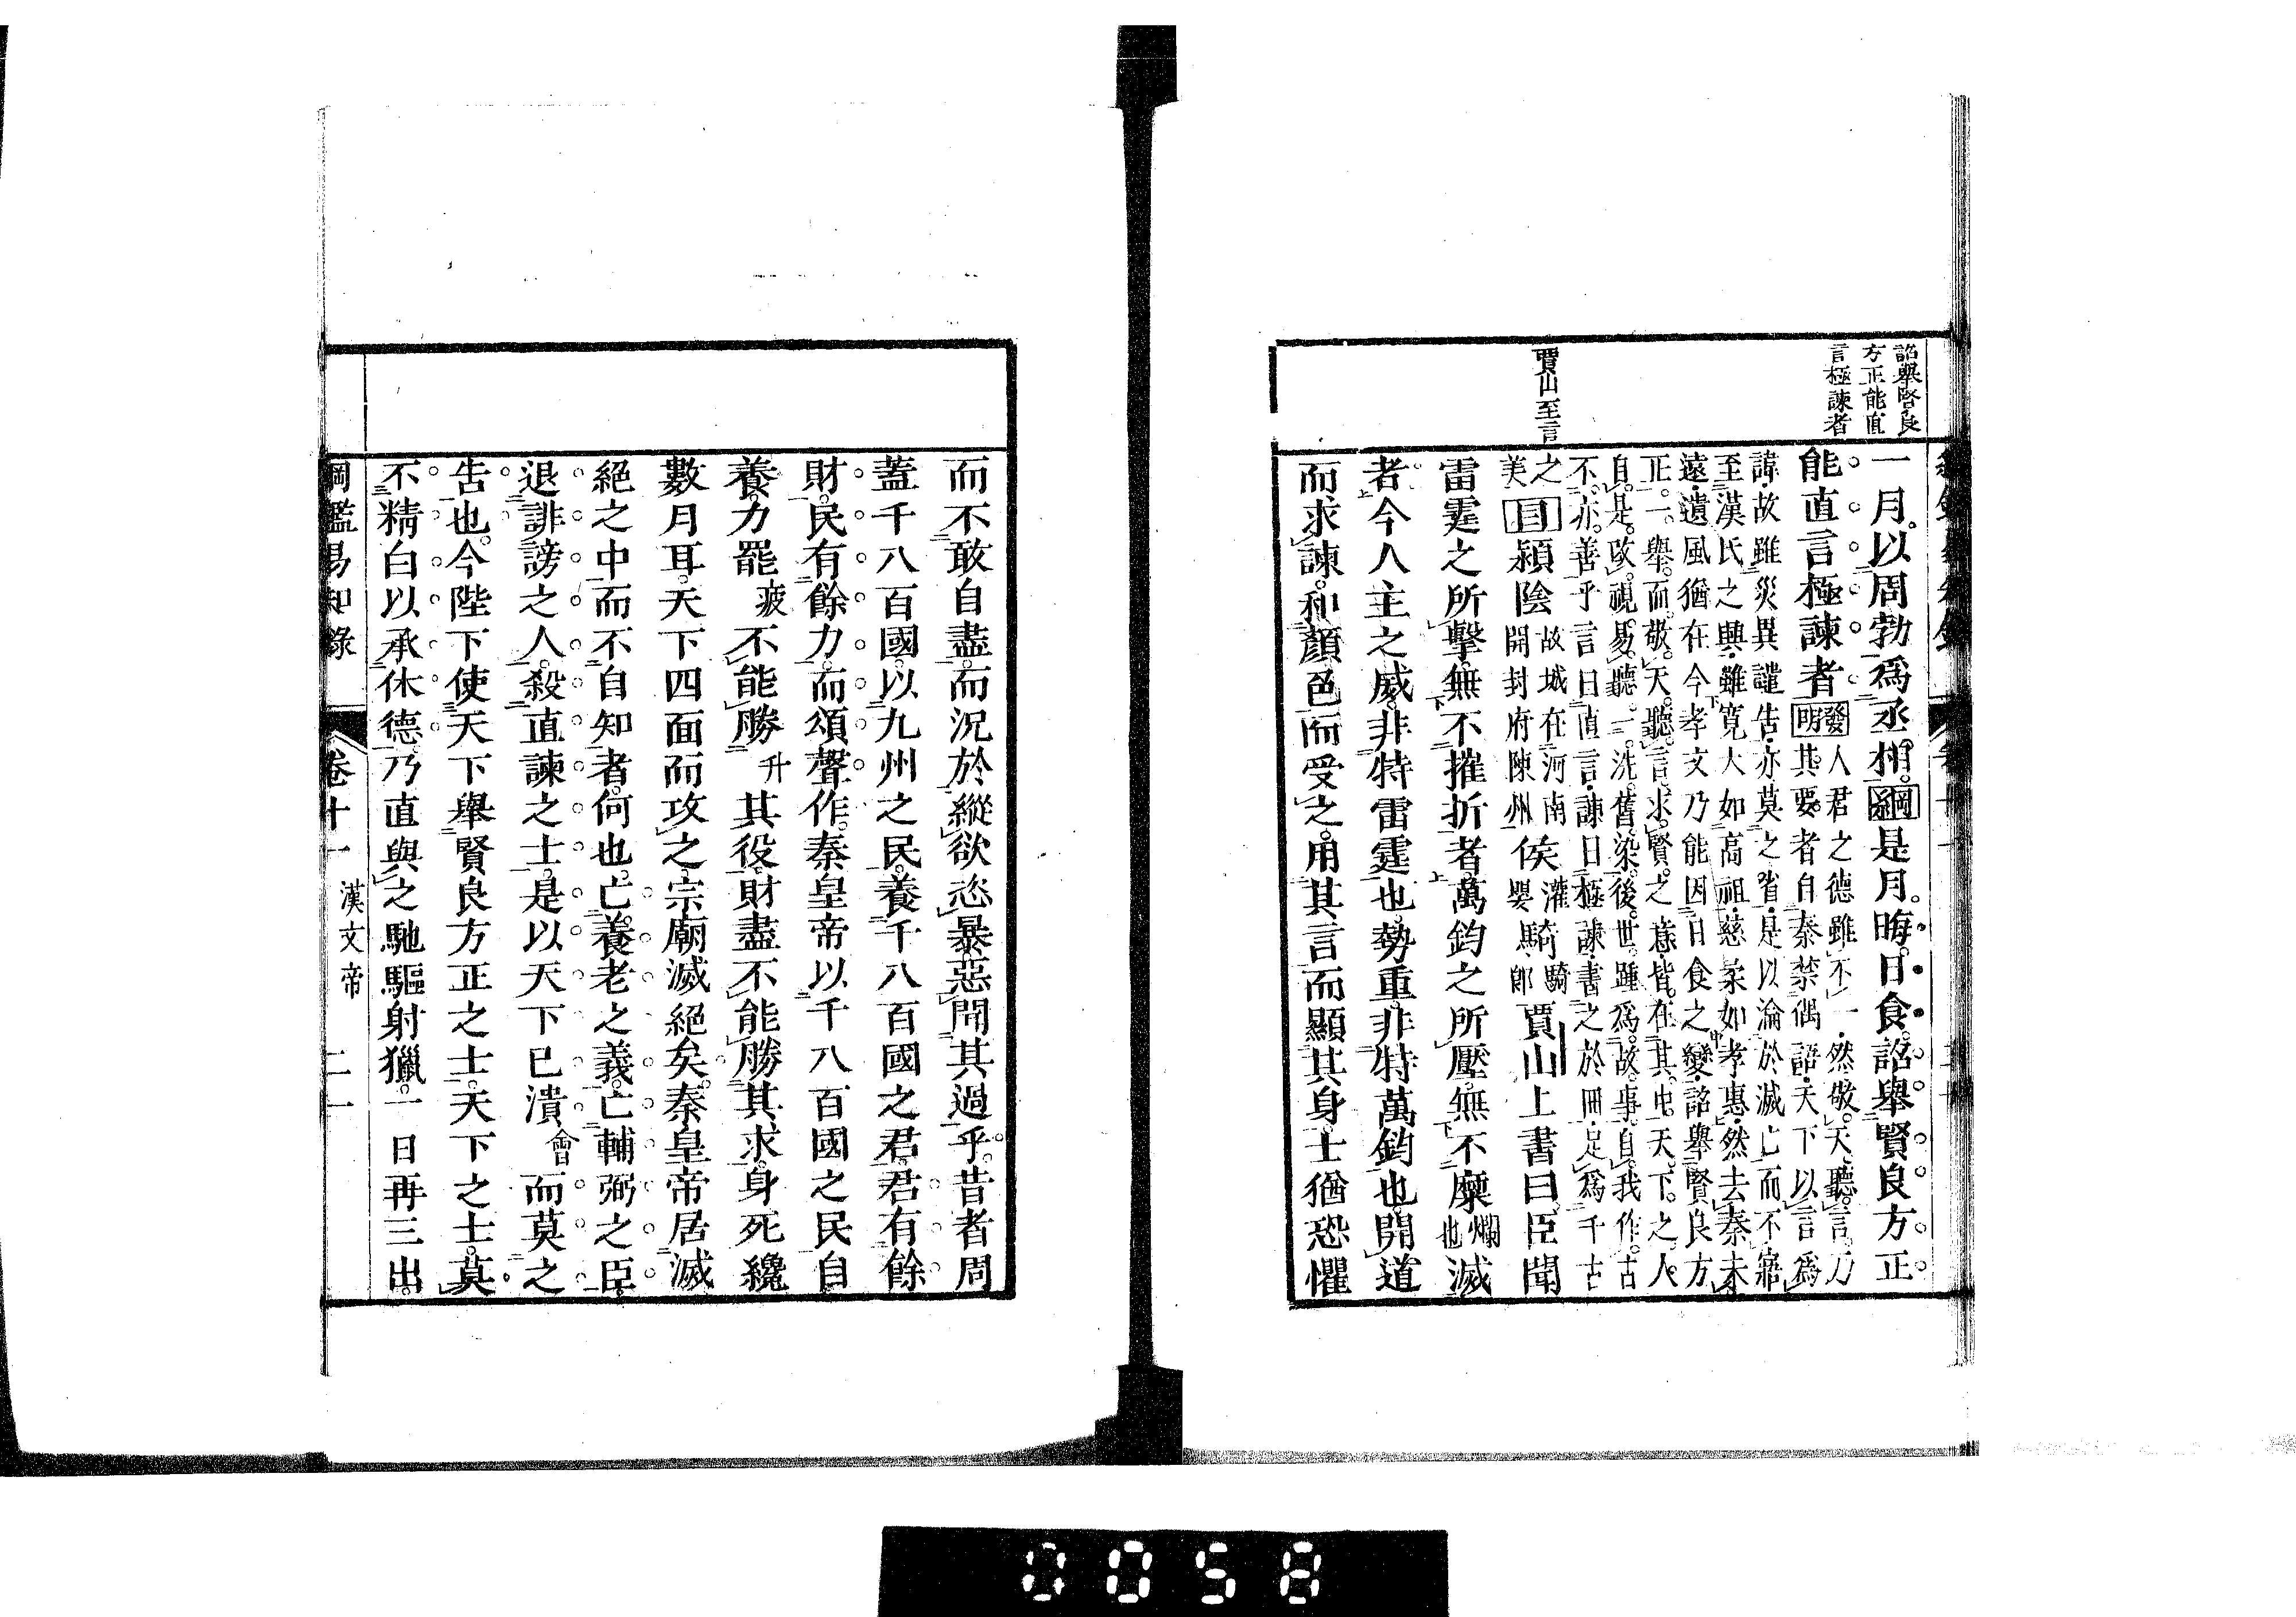 詔舉賢良
方正能直
言極諫者
賈山至言
一月以周勃爲丞相綱是月晦日食詔舉賢良方正
能直言極諫者發明人君之德雖不一然敬天聽言乃
其要者自秦禁偶語天下以言爲
諱故雖災異譴告亦莫之省是以淪於滅亡而不寤
至漢氏之興雖寬大如高祖慈柔如孝惠然去秦未
遠遺風猶在今孝文乃能因日食之變詔舉賢良方
正一舉而敬天聽言求賢之意皆在其中天下之人
自是改視易聽一洗舊染後世踵爲故事自我作古
不亦善乎言曰直言諫曰極諫書之於冊足爲千古
之
美目潁陰故城在河南
開封府陳州侯灌
嬰騎
郎騎賈山上書曰臣聞
雷霆之所擊無不摧折者萬鈞之所壓無不糜爛
也滅
者今人主之威非特雷霆也勢重非特萬鈞也開道
而求諫和顏色而受之用其言而顯其身士猶恐懼
而不敢自盡而況於縱欲恣暴惡聞其過乎昔者周
蓋千八百國以九州之民養千八百國之君君有餘
財民有餘力而頌聲作秦皇帝以千八百國之民自
養力罷疲不能勝升其役財盡不能勝其求身死纔
數月耳天下四面而攻之宗廟滅絕矣秦皇帝居滅
絕之中而不自知者何也亡養老之義亡輔弼之臣
退誹謗之人殺直諫之士是以天下已潰會而莫之
告也今陛下使天下舉賢良方正之士天下之士莫
不精白以承休德乃直與之馳驅射獵一日再三出
綱鑑易知錄 卷十一 漢文帝 二一